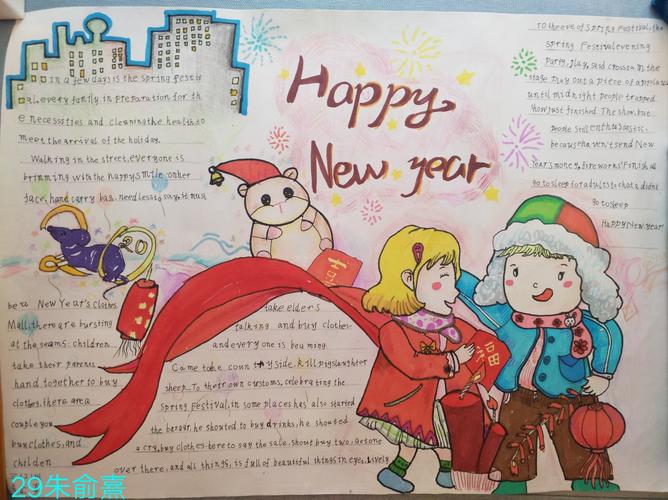 Happy
New year
In a few days is the spring festiv
al, every family in preparation for th
e necessities and cleaning the health to
meet the arrival of the holiday.
Walking in the street, everyone is
brimming with the happy smile on her
face, hand carry bag, needless to say, it must
be a New Year's clothes
Mall, there are bursting
at the seams: children
take their parents
hand together to buy
clothes, there are a
couple you
buy clothes, and
children
take elders
talking and buy clothes
and everyone is beaming.
Came to the countryside, kill pig slaughter
sheep. To their own customs, celebrating the
Spring Festival, in some places has also started
the bazaar, he shouted to buy drinks, he shouted
a cry, buy clothes, here to say the sale, shout buy two
over there, and all things, is full of beautiful things in eyes. Lively
To the eve of Spring Festival, the
Spring Festival evening
Party, play, said crosson the
stage play out a piece of applause
until midnight people trapped
how just finished. The show, but
people still enthusiastic.
because haven't send New
Year's money, fireworks! Finish, all
go to sleep for adults to chat a didn't
go to sleep
Happy New year
福
29朱俞熹